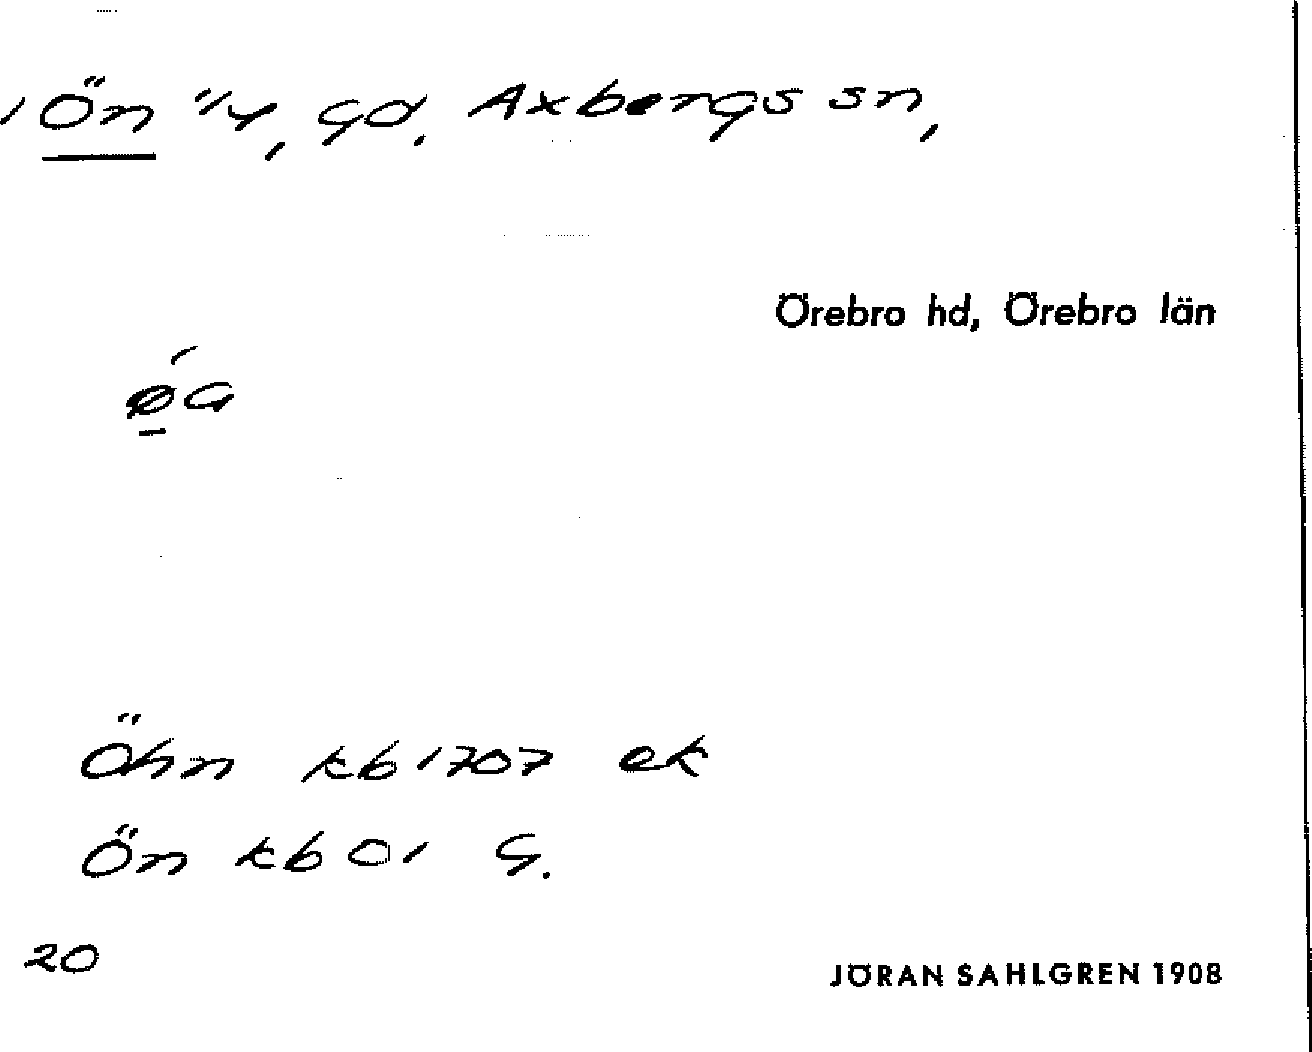 Ön 1/4, gd. Axbergs sn,
Örebro hd, Örebro län
Öhn kb 1707 ek
Ön kb 01 G.
20
JÖRAN SAHLGREN 1908